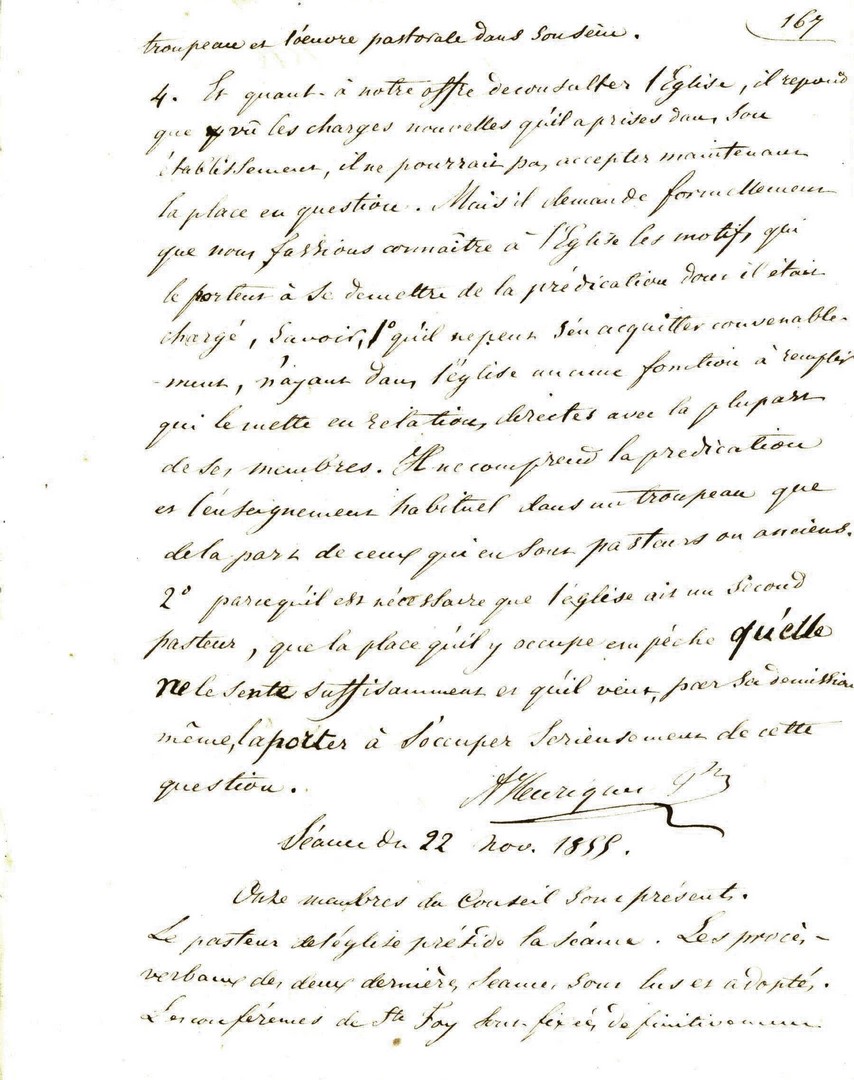 167
troupeau et l'oeuvre pastorale dans son sein.
4. Et quant à notre offre de consulter l'Eglise, il repond
que vû les charges nouvelles qu'il a prises dans son
établissement, il ne pourrait pas accepter maintenant
la place en question. Mais il demande formellement
que nous fassions connaître à l'Eglise les motifs qui
le portent à se demettre de la prédication dont il était
chargé, savoir, 1º qu'il ne peut s'en acquitter convenable-
-ment, n'ayant dans l'église aucune fonction à remplir
qui le mette en relations directes avec la plupart
de ses membres. Il ne comprend la predication
et l'enseignement habituel dans un troupeau que
de la part de ceux qui en sont pasteurs ou anciens.
2º parcequ'il est nécessaire que l'église ait un second
pasteur, que la place qu'il y occupe empêche qu'elle
ne le sente suffisamment et qu'il veut, par sa demission
même, la porter à s'occuper serieusement de cette
question.
A Henriquet
Séance du 22 Nov. 1855.
Onze membres du Conseil sont présents.
Le pasteur de l'église préside la séance. Les procès-
verbaux des deux dernières seances sont lus et adoptés.
Les conférences de Ste Foy sont fixées definitivement